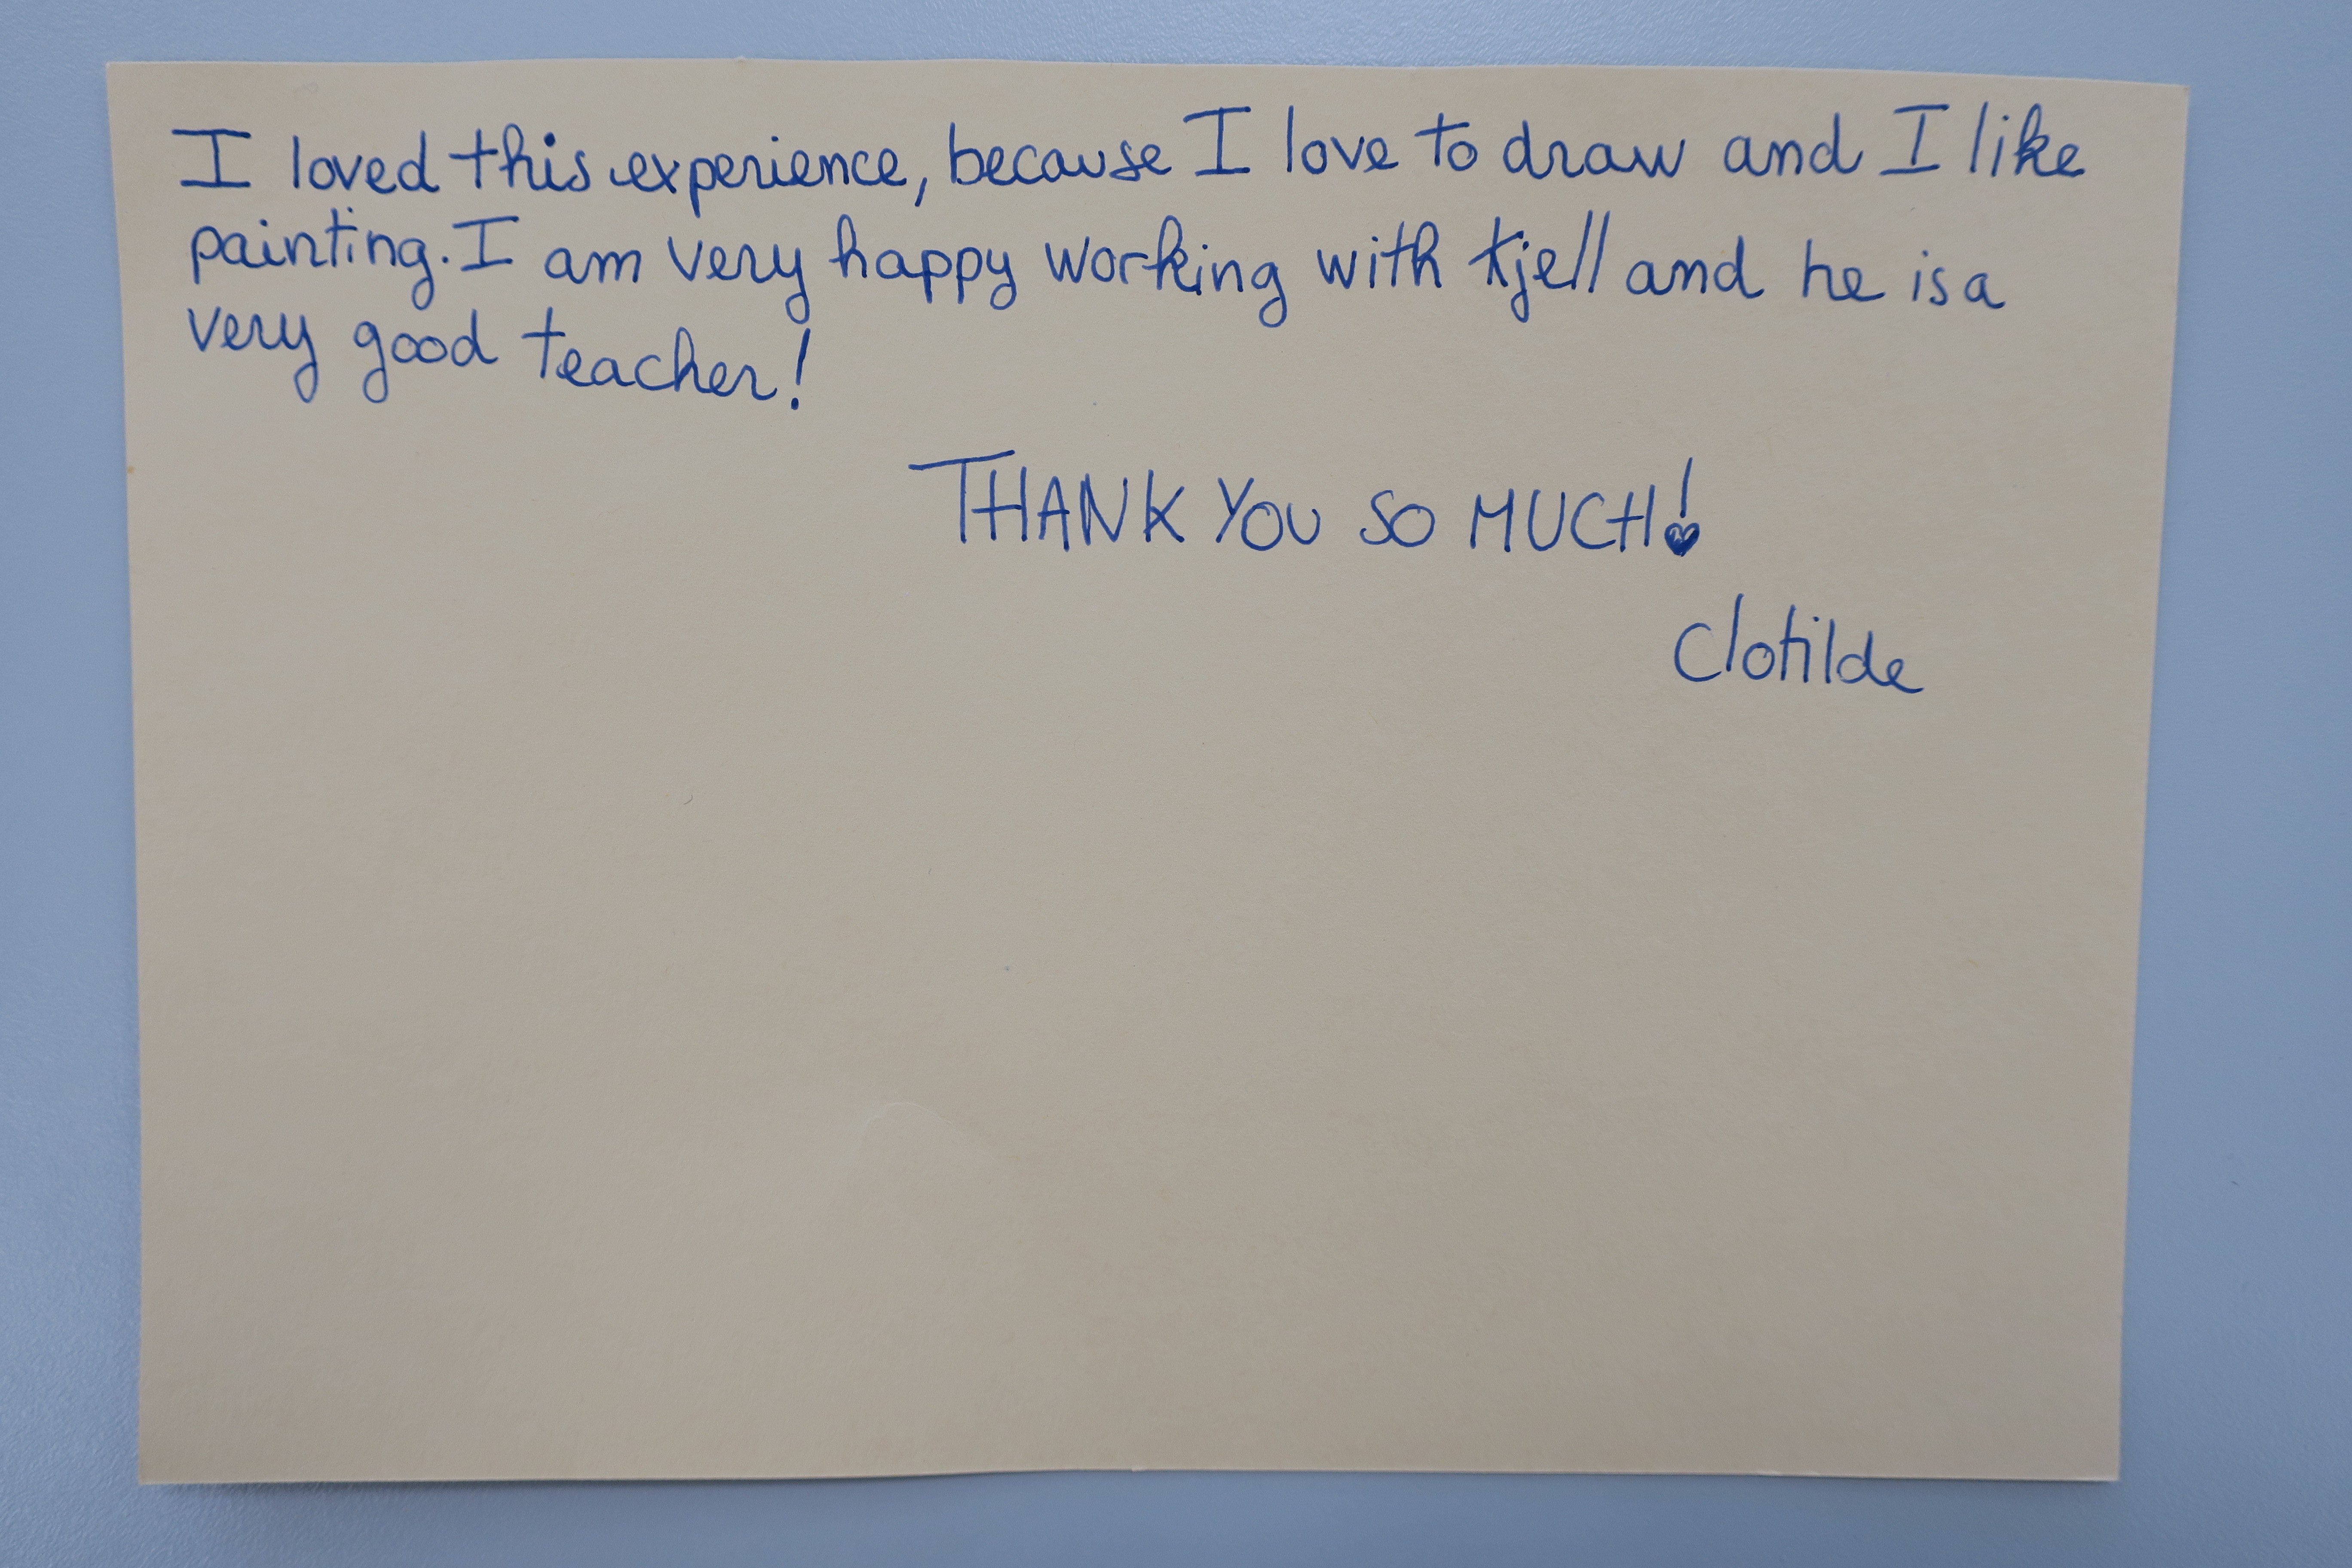 I loved this experience, because I love to draw and I like
painting. I am very happy working with Kjell and he is a
very good teacher!
THANK YOU SO MUCH!
Clotilde